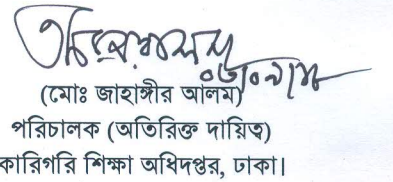 (মোঃ জাহাঙ্গীর আলম)
পরিচালক (অতিরিক্ত দায়িত্ব)
কারিগরি শিক্ষা অধিদপ্তর, ঢাকা।